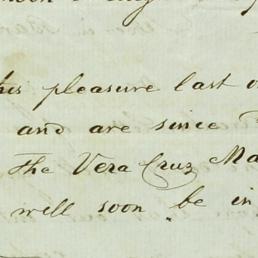 his pleasure last
and are since
The Vera Cruz Ma
will soon be in